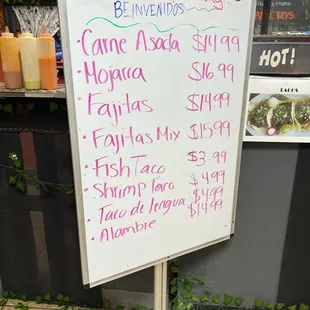 BIENVENIDOS
• Carne Asada $14.99
• Mojarra $16.99
• Fajitas $14.99
• Fajitas Mix $15.99
• Fish Taco $3.99
• Shrimp Taco $4.99
• Taco de lengua $4.99
• Alambre $14.99
HOT!
TACOS